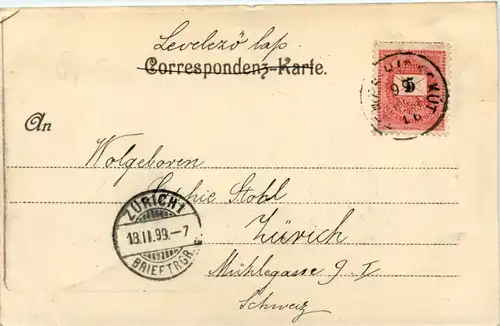 Levelező lap
Correspondenz-Karte.
5
99
An
Wolgeboren
Sophie Stohl
ZÜRICH 1
18.II.99.-7
BRIEFTRG.R.
Zürich
Mühlegasse 9 I
Schweiz